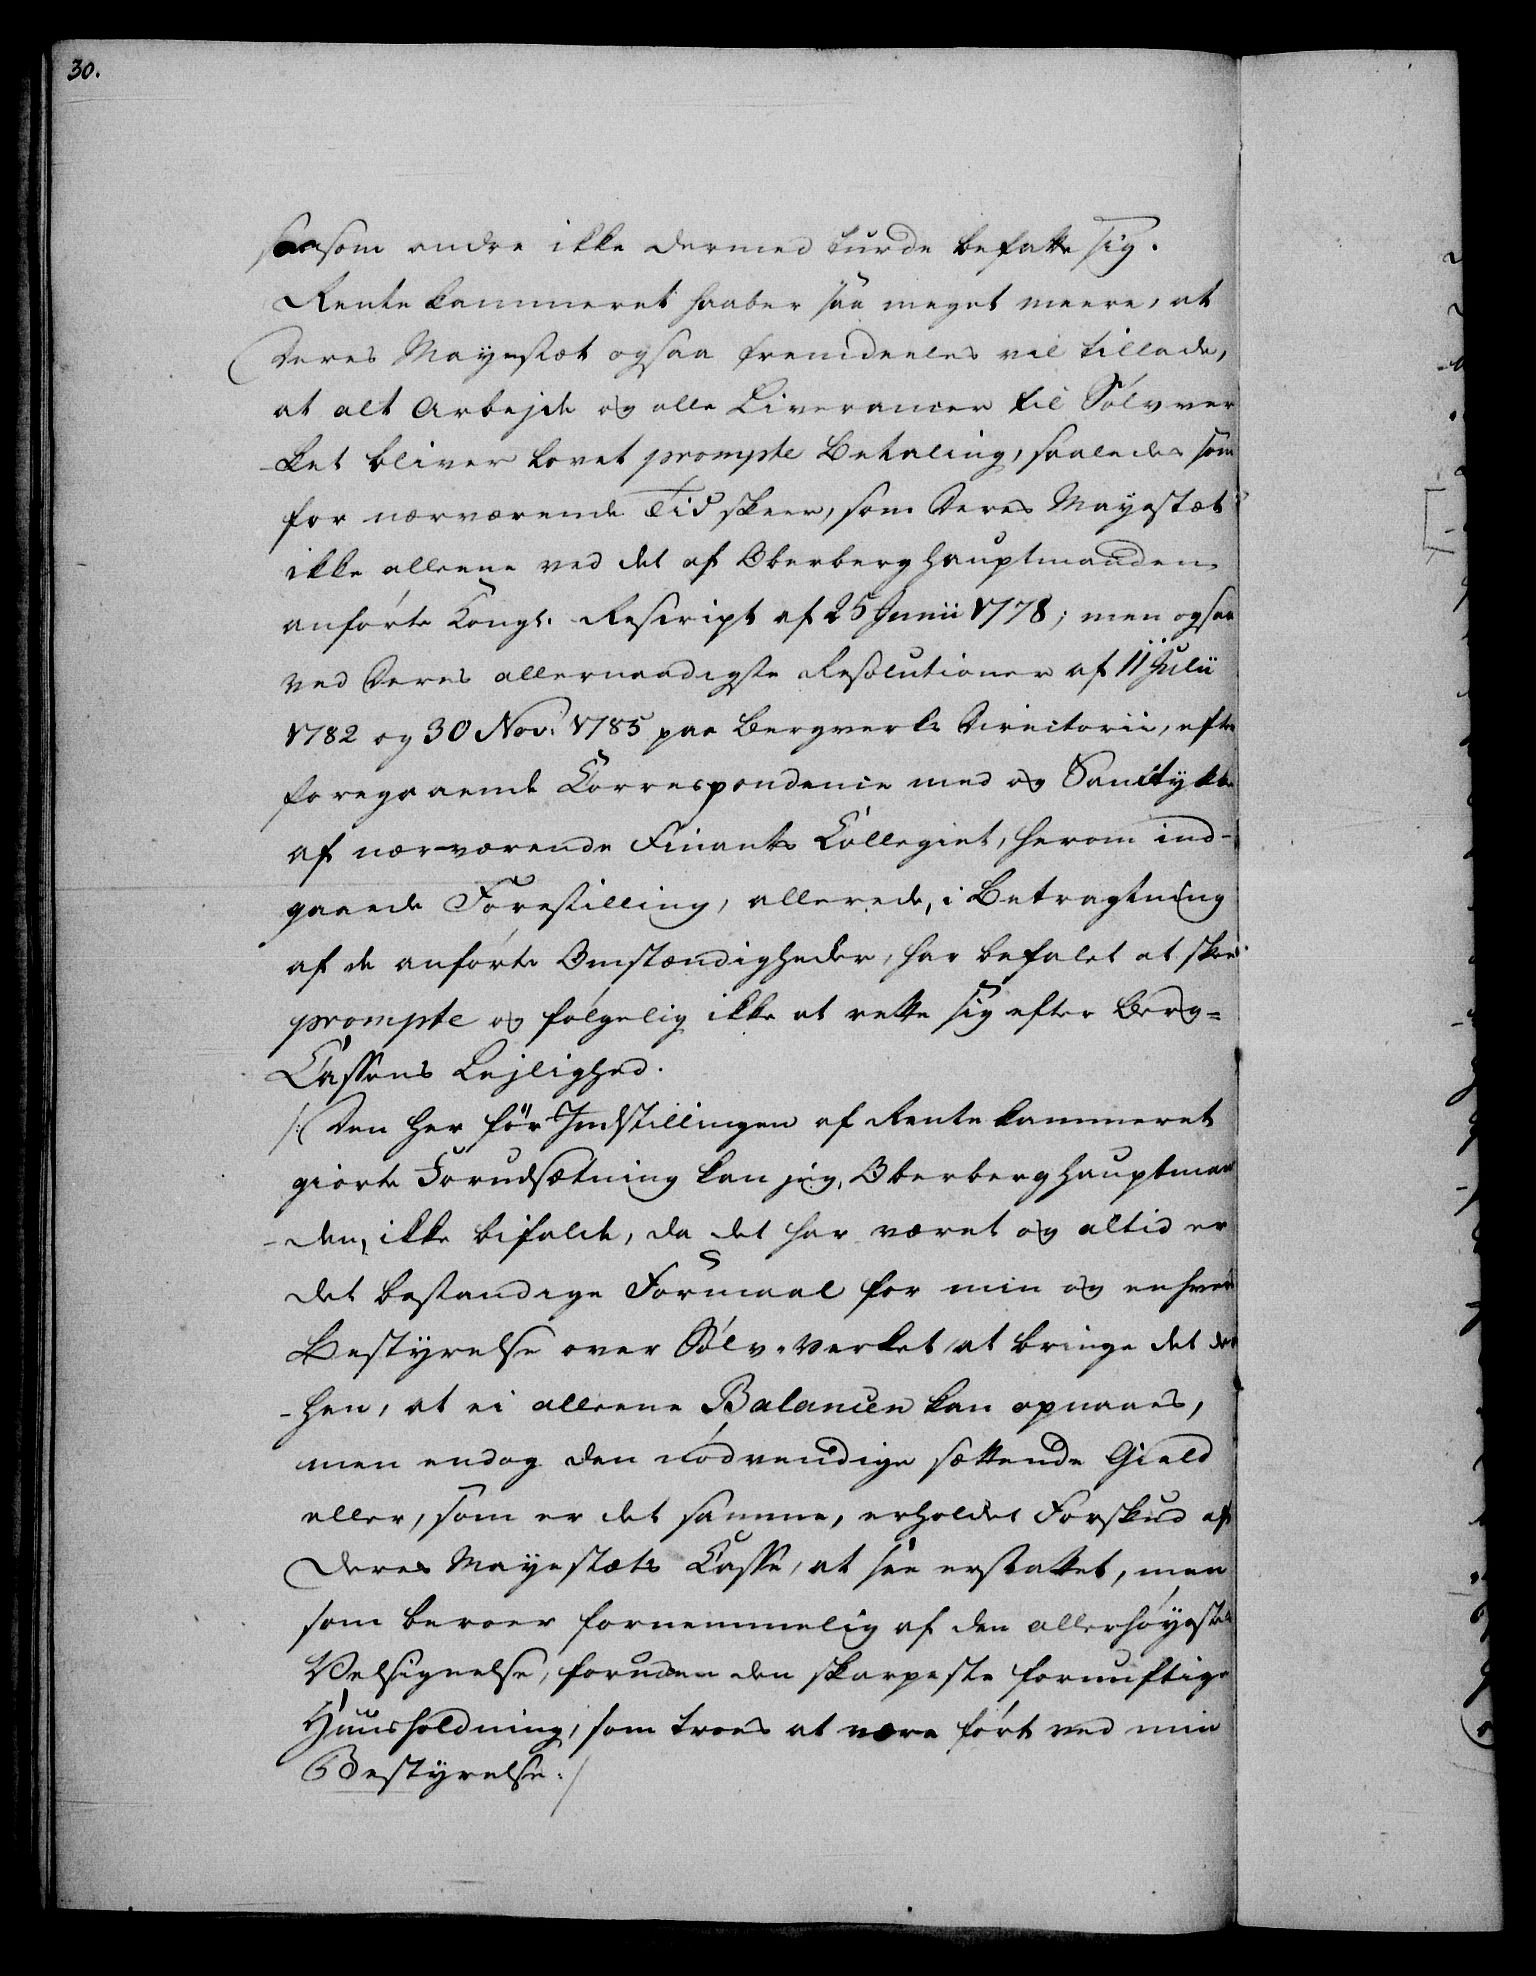 30.
saasom andre ikke dermed turde befatte sig.
Rentekammeret haaber saa meget meere, at
Deres Mayestæt ogsaa fremdeeles vil tillade,
at alt Arbejde og alle Liverancer til Sølvver
-ket bliver lovet prompte Betaling, saaledes som
for nærværende Tid skeer, som Deres Mayestæt
ikke alleene ved det af Oberberghauptmanden
anførte Kongl. Rescript af 25 Junii 1778; men ogsaa
ved Deres allernaadigste Resolutioner af 11 Julii
1782 og 30 Nov. 1785 paa Bergverks Directorii, efter
foregaaende Correspondence med og Samtykke
af nærværende Finants Collegiet, herom ind-
gaaede Forestilling, allerede, i Betragtning
af de anførte Omstændigheder, har befalet at skee
prompte og følgelig ikke at rette sig efter Berg-
Cassens Lejlighed.
/: Den her før Indstillingen af Rentekammeret
giorte Forudsætning kan jeg, Oberberghauptman
-den, ikke bifalde, da det har været og altid er
det bestandige Formaal for min og enhver
Bestyrelse over Sølv-Verket at bringe det der
-hen, at ei alleene Balancen kan opnaaes,
men endog den nødvendige sættende Gield
eller, som er det samme, erholdet Forskud af
Deres Mayestæts Casse, at see erstattet, men
som beroer fornemmelig af den allerhøyeste
Velsignelse, foruden den skarpeste fornuftige
Huusholdning, som troes at være ført ved min
Bestyrelse :/